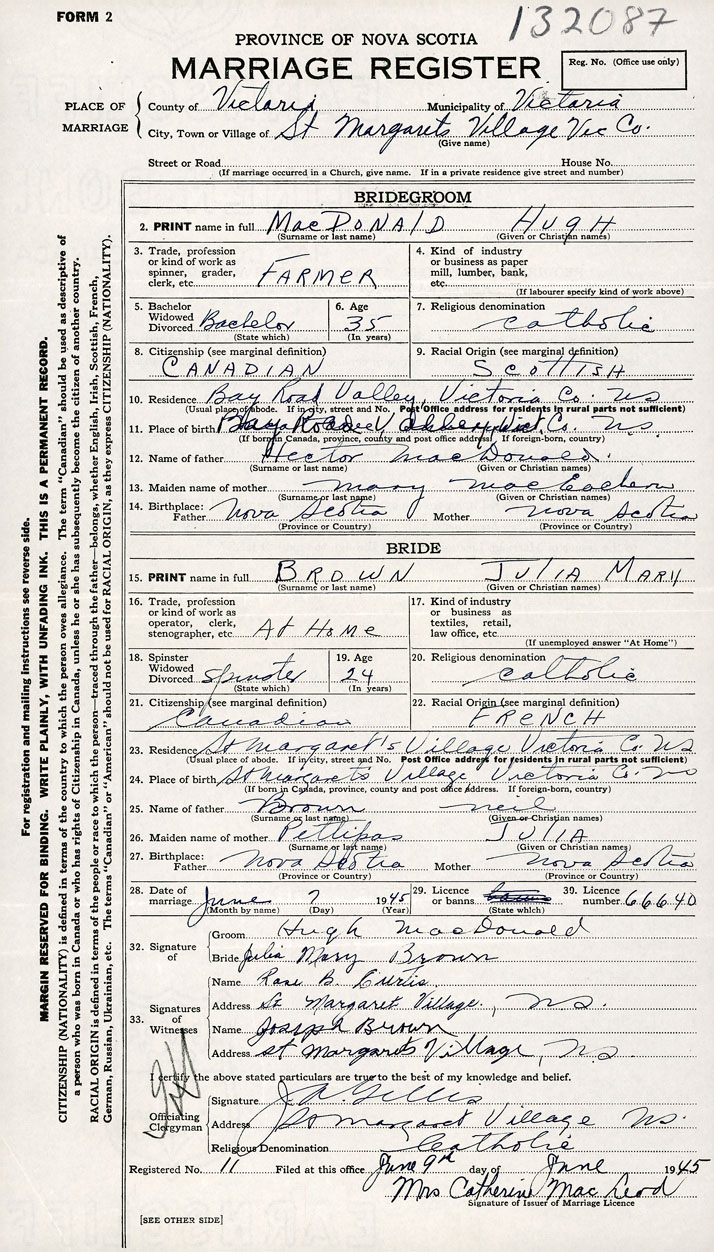 FORM 2
132087
PROVINCE OF NOVA SCOTIA
MARRIAGE REGISTER
Reg. No. (Office use only)
PLACE OF MARRIAGE
County of Victoria Municipality of Victoria
City, Town or Village of St Margarets Village Vic Co.
(Give name)
Street or Road House No.
(If marriage occurred in a Church, give name. If in a private residence give street and number)
BRIDEGROOM
2. PRINT name in full MacDONALD HUGH
(Surname or last name) (Given or Christian names)
3. Trade, profession or kind of work as spinner, grader, clerk, etc. FARMER
4. Kind of industry or business as paper mill, lumber, bank, etc.
(If labourer specify kind of work above)
5. Bachelor Widowed Divorced Bachelor
(State which)
6. Age 35
(In years)
7. Religious denomination Catholic
8. Citizenship (see marginal definition) CANADIAN
9. Racial Origin (see marginal definition) SCOTTISH
10. Residence Bay Road Valley, Victoria Co. NS
(Usual place of abode. If in city, street and No. Post Office address for residents in rural parts not sufficient)
11. Place of birth Bay Road Valley Vict. Co. NS
(If born in Canada, province, county and post office address. If foreign-born, country)
12. Name of father Hector MacDonald
(Surname or last name) (Given or Christian names)
13. Maiden name of mother Mary MacEachern
(Surname or last name) (Given or Christian names)
14. Birthplace: Father Nova Scotia Mother Nova Scotia
(Province or Country) (Province or Country)
BRIDE
15. PRINT name in full BROWN JULIA MARY
(Surname or last name) (Given or Christian names)
16. Trade, profession or kind of work as operator, clerk, stenographer, etc. At Home
17. Kind of industry or business as textiles, retail, law office, etc.
(If unemployed answer "At Home")
18. Spinster Widowed Divorced Spinster
(State which)
19. Age 24
(In years)
20. Religious denomination Catholic
21. Citizenship (see marginal definition) Canadian
22. Racial Origin (see marginal definition) FRENCH
23. Residence St Margaret's Village Victoria Co. NS
(Usual place of abode. If in city, street and No. Post Office address for residents in rural parts not sufficient)
24. Place of birth St Margarets Village Victoria Co. NS
(If born in Canada, province, county and post office address. If foreign-born, country)
25. Name of father Brown Neil
(Surname or last name) (Given or Christian names)
26. Maiden name of mother Pettipas JULIA
(Surname or last name) (Given or Christian names)
27. Birthplace: Father Nova Scotia Mother Nova Scotia
(Province or Country) (Province or Country)
28. Date of marriage June 7 1945
(Month by name) (Day) (Year)
29. Licence or banns
(State which)
30. Licence number 66640
32. Signature of
Groom Hugh MacDonald
Bride Julia Mary Brown
33. Signatures of Witnesses
Name Rose B. Curtis
Address St Margaret Village, NS.
Name Joseph Brown
Address St Margarets Village, NS
I certify the above stated particulars are true to the best of my knowledge and belief.
Officiating Clergyman
Signature J A Gillis
Address St Margaret Village NS.
Religious Denomination Catholic
Registered No. 11 Filed at this office June 9th day of June 1945
Mrs Catherine MacLeod
Signature of Issuer of Marriage Licence
[SEE OTHER SIDE]
For registration and mailing instructions see reverse side.
MARGIN RESERVED FOR BINDING. WRITE PLAINLY, WITH UNFADING INK. THIS IS A PERMANENT RECORD.
CITIZENSHIP (NATIONALITY) is defined in terms of the country to which the person owes allegiance. The term "Canadian" should be used as descriptive of
a person who was born in Canada or who has rights of Citizenship in Canada, unless he or she has subsequently become the citizen of another country.
RACIAL ORIGIN is defined in terms of the people or race to which the person—traced through the father—belongs, whether English, Irish, Scottish, French,
German, Russian, Ukrainian, etc. The terms "Canadian" or "American" should not be used for RACIAL ORIGIN, as they express CITIZENSHIP (NATIONALITY).